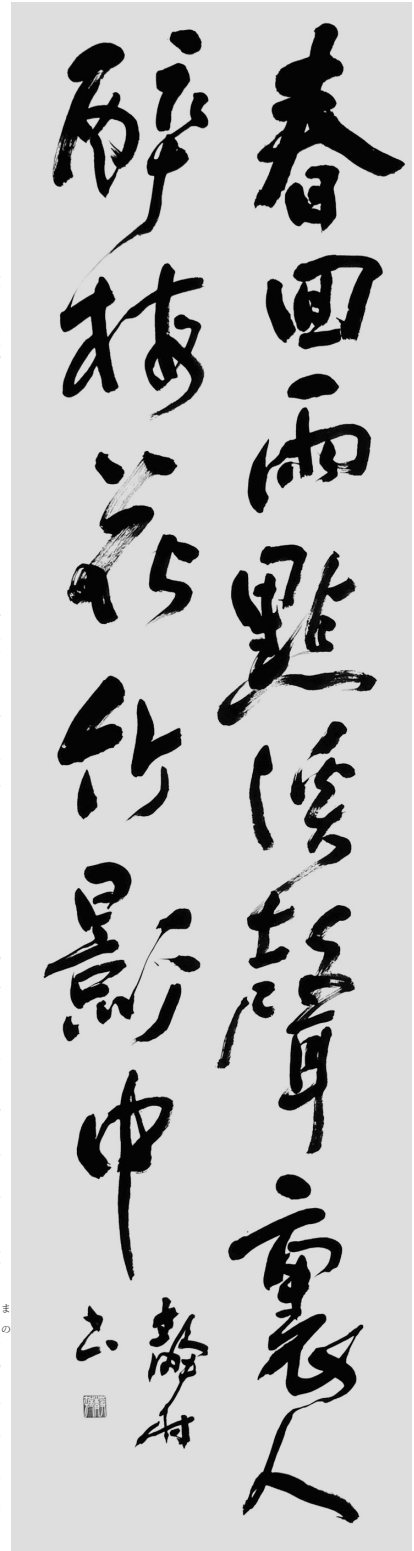 春回雨點溪聲裏人
醉梅花竹影中
静村
書
まの